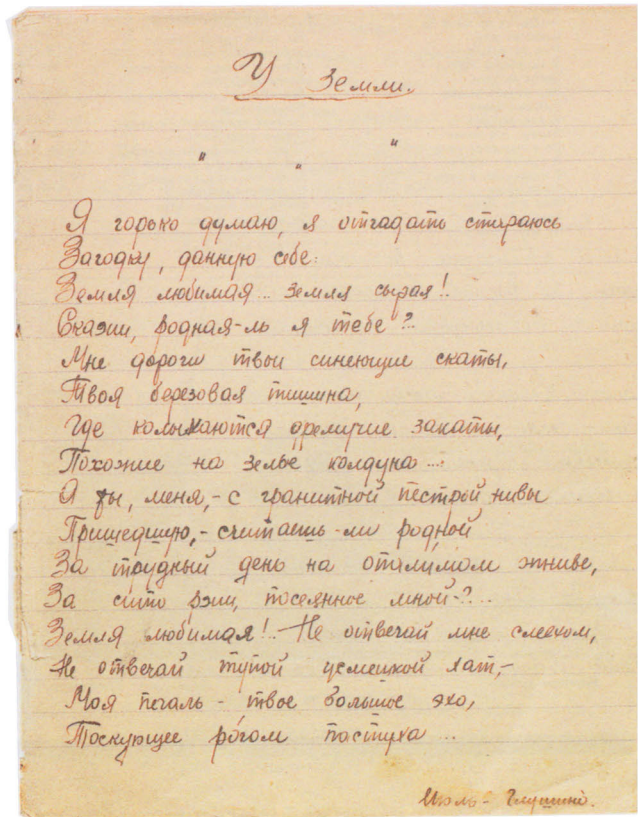 У Земли.
" " "
Я горько думаю, я отгадать стараюсь
Загадку, данную себе:
Земля любимая... земля сырая!..
Скажи, родная-ль я тебе?..
Мне дороги твои синеющие скаты,
Твоя березовая тишина,
Где колыхаются дремучие закаты,
Похожие на зелье колдуна...
А ты, меня, - с гранитной пестрой нивы
Пришедшую, - считаешь-ли родной
За трудный день на отжимом жниве,
За сито ржи, посеянное мной-?..
Земля любимая!.. Не отвечай мне смехом,
Не отвечай тупой усмешкой хат, -
Моя печаль - твое большое эхо,
Тоскующее рогом пастуха...
Июль - Глушино.